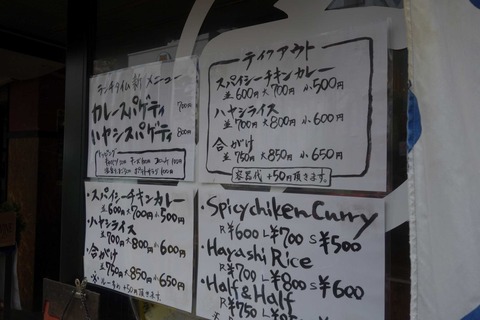 ランチタイム 新メニュー
カレースパゲティ 700円
ハヤシスパゲティ 800円
トッピング
テイクアウト
スパイシーチキンカレー
並600円 大700円 小500円
ハヤシライス
並700円 大800円 小600円
合がけ
並750円 大850円 小650円
容器代 +50円頂きます。
・スパイシーチキンカレー
並600円 大700円 小500円
・ハヤシライス
並700円 大800円 小600円
・合がけ
並750円 大850円 小650円
+50円頂きます。
・Spicychiken Curry
R¥600 L¥700 S¥500
・Hayashi Rice
R¥700 L¥800 S¥600
・Half & Half
R¥750 L¥85